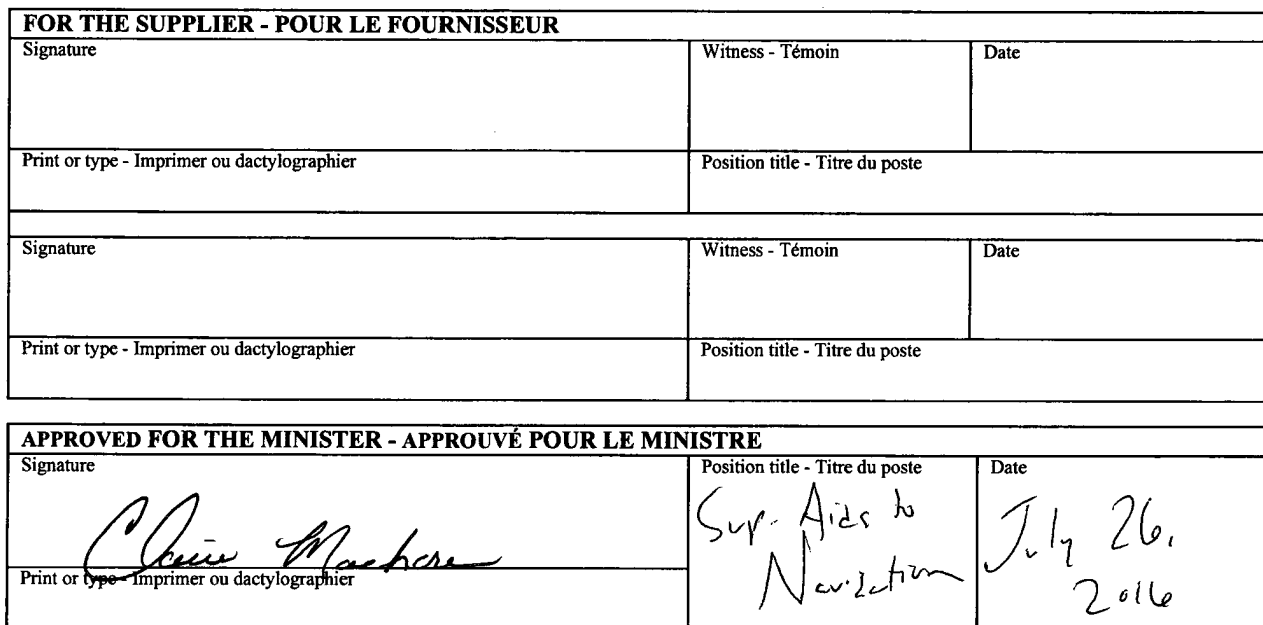 FOR THE SUPPLIER - POUR LE FOURNISSEUR
Signature
Witness - Témoin
Date
Print or type - Imprimer ou dactylographier
Position title - Titre du poste
Signature
Witness - Témoin
Date
Print or type - Imprimer ou dactylographier
Position title - Titre du poste
APPROVED FOR THE MINISTER - APPROUVÉ POUR LE MINISTRE
Signature
Position title - Titre du poste
Date
Claire
Sup. Aids to
Navigation
July 26,
2016
Print or type - Imprimer ou dactylographier